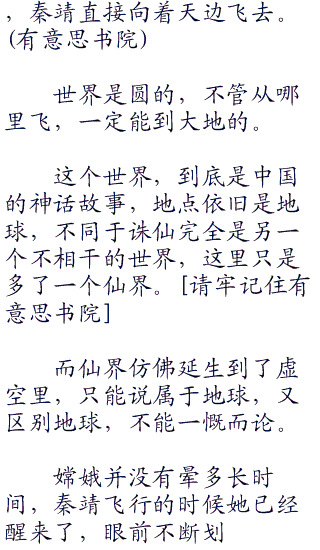 ，秦靖直接向着天边飞去。
(有意思书院)
世界是圆的，不管从哪
里飞，一定能到大地的。
这个世界，到底是中国
的神话故事，地点依旧是地
球，不同于诛仙完全是另一
个不相干的世界，这里只是
多了一个仙界。[请牢记住有
意思书院]
而仙界仿佛延生到了虚
空里，只能说属于地球，又
区别地球，不能一慨而论。
嫦娥并没有晕多长时
间，秦靖飞行的时候她已经
醒来了，眼前不断划